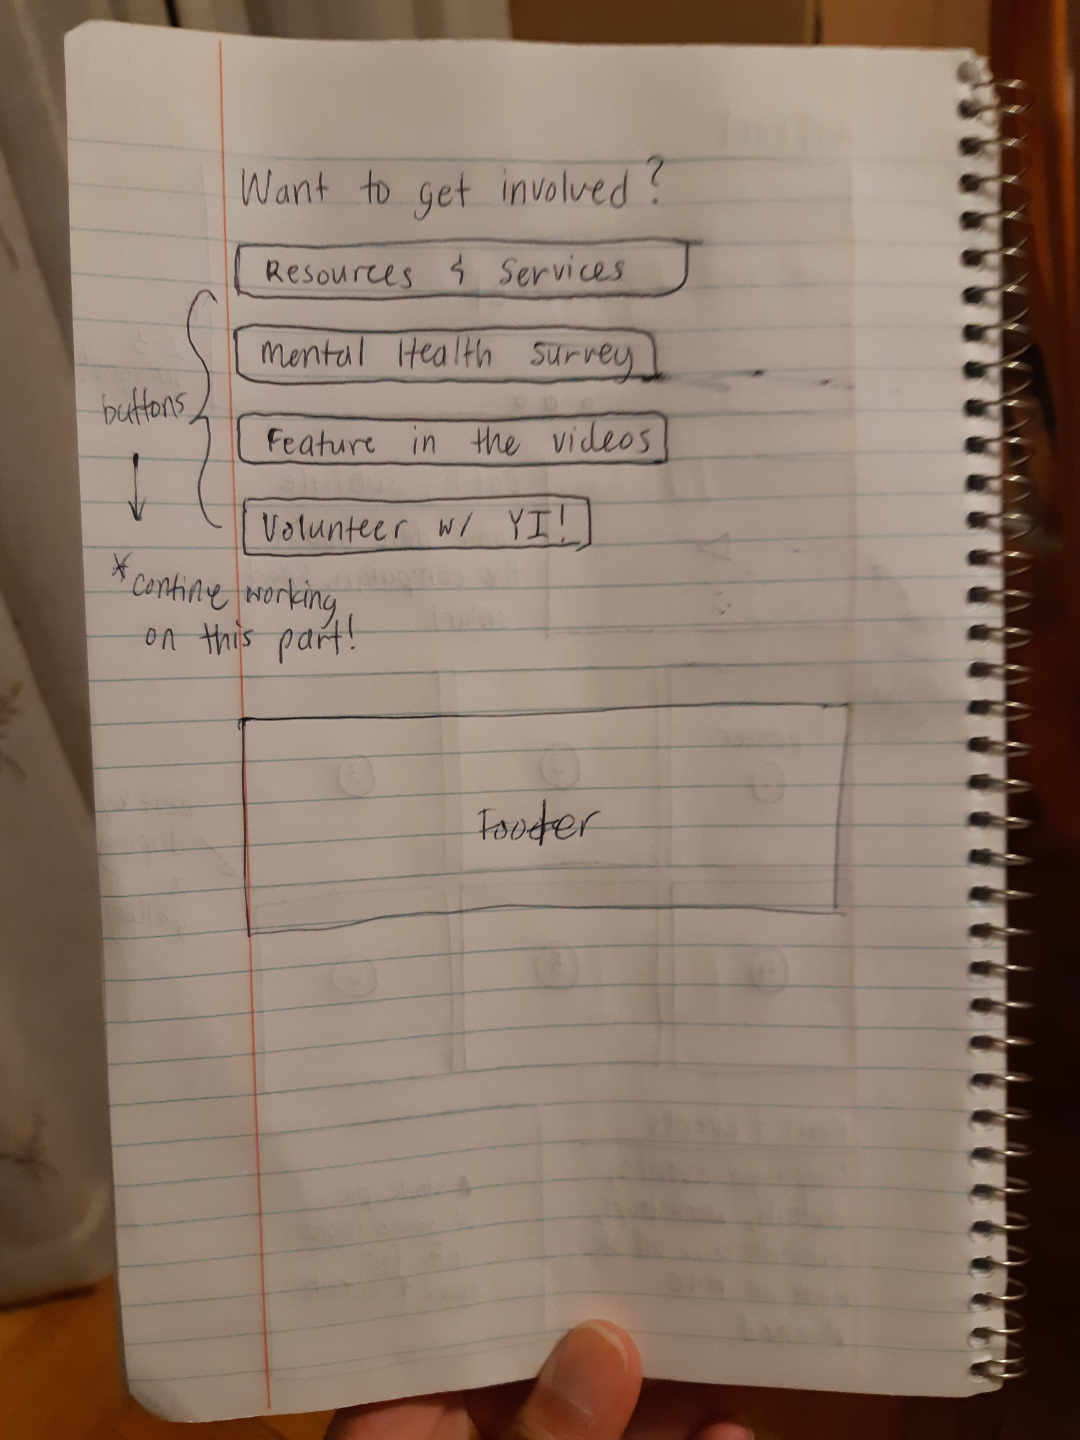 Want to get involved?
Resources & Services
Mental Health survey
buttons
Feature in the videos
Volunteer w/ YI!
*continue working
on this part!
Footer